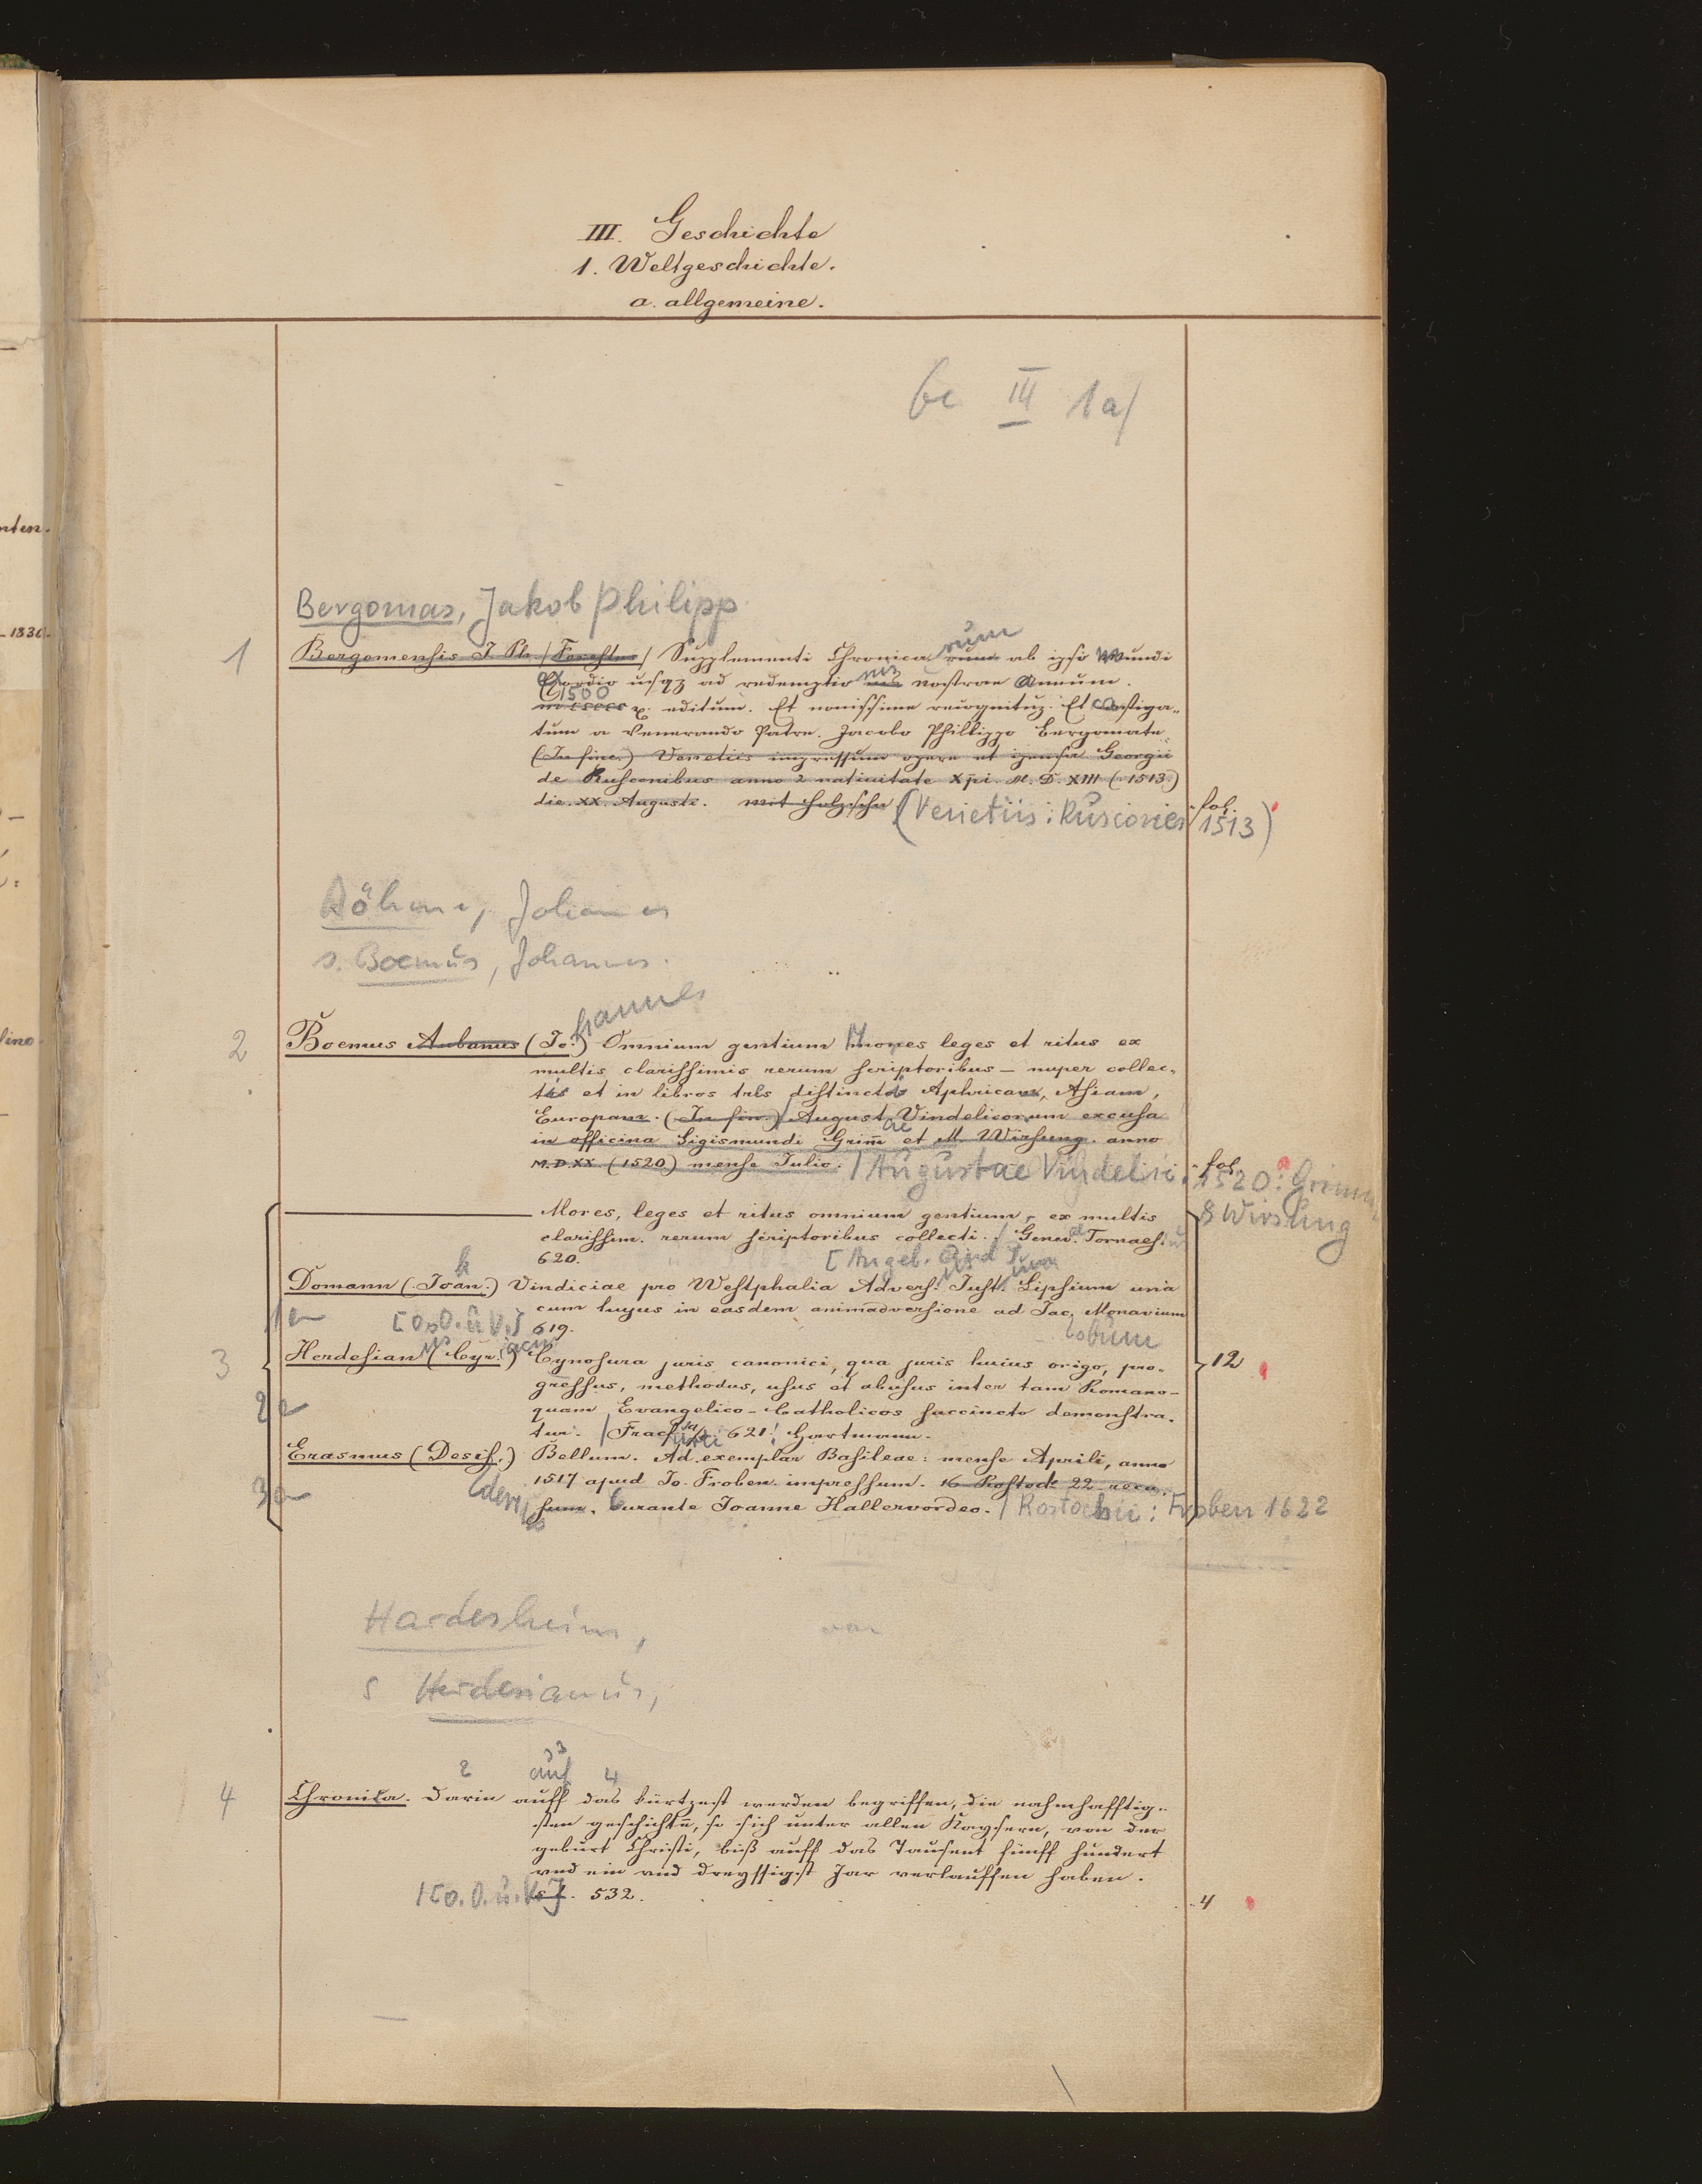 III. Geschichte
1. Weltgeschichte.
a. allgemeine.
III 1a/
Bergomas, Jakob Philipp
1 Bergomensis J. Ph. / Foresstus / Supplementi Chronicarum rum ab ipso Mundi
exordio usqz ad redemptio nis nostrae Annum.
1500 x. editum. Et nouissime recognituz. Et castiga-
tum a Venerando Patre. Jacobo Phillippo Bergomate
(In fine.) Venetiis impressum opere et ipensa Georgii
de Rusconibus anno a natiuitate Xpi. M. D. XIII (1513.)
die. XX. Augusti. mit Holzschn (Venetiis: Rusconier 1513) fol.
Böhme, Johannes
s. Boemus, Johannes.
2 Boemus Aubanus (Jo.) hannes Omnium gentium Mores leges et ritus ex
multis clarissimis rerum scriptoribus – nuper collec-
tis et in libros tres distinctos Aphricam, Asiam,
Europam. (In fin.) August. Vindelicorum excusa
in officina Sigismundi Grim̄ et M. Wirsung. anno
M.D.XX (1520) mense Julio. / Augustae Vindelic. fol. 1520: Grimm
& Wirsung
Mores, leges et ritus omnium gentium, ex multis
clarissim. rerum scriptoribus collecti. / Genev. Tornaes.
620.
[Angeb.
Domann (Joan.) h Vindiciae pro Westphalia Advers. Just. Lipsium una
cum hujus in easdem animadversione ad Jac. Monavium
1a [o. O. u. V.] 619. cobum
3 Herdesian (Cyr.) us iacus Cynosura juris canonici, qua juris huius origo, pro-
gressus, methodus, usus et abusus inter tam Romano- 12
2a quam Evangelico-Catholicos succincto demonstra-
tur. / 621: Hartmann.
Erasmus (Desid.) Bellum. Ad exemplar Basileae: mense Aprili, anno
3a 1517 apud Jo. Froben. impressum. 16 Rostock 22 recu-
sum. Curante Joanne Hallervordeo. / Rostochii: Froben 1622
Hardesheim,
s Herdesianus,
2 auf 3 4
4 Chronica. Darin auff das kürtzest werden begriffen, die nahmhafftig-
sten geschichtē, so sich unter allen Kaysern, von der
geburt Christi, biß auff das Tausent fünff hundert
vnd ein vnd dreyssigist Jar verlauffen haben.
/ [o. O. u. V.] s. l. 532. 4